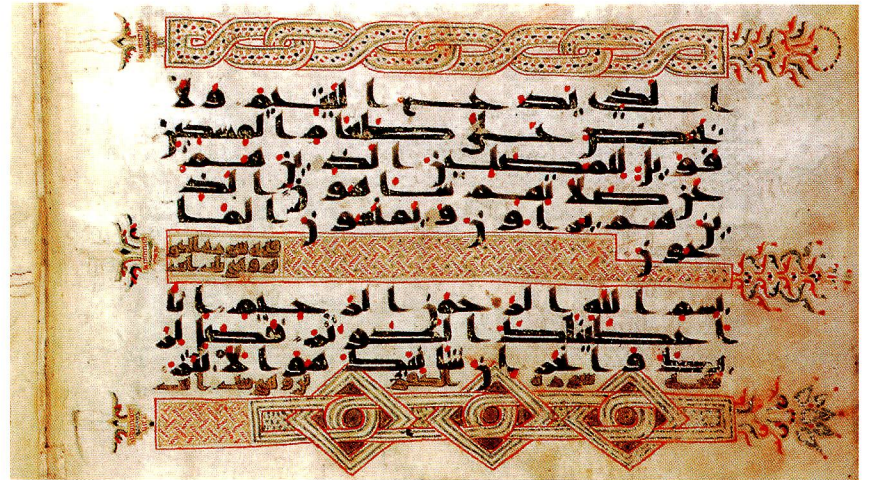 الذي يدع اليتيم ولا
يحض على طعام المسكين
فويل للمصلين الذين هم
عن صلاتهم ساهون الذ
ين هم يراون ويمنعون الما
عون
بسم الله الرحمن الرحيم انا
اعطينك الكوثر فصل لر
بك وانحر ان شانئك هو الابتر